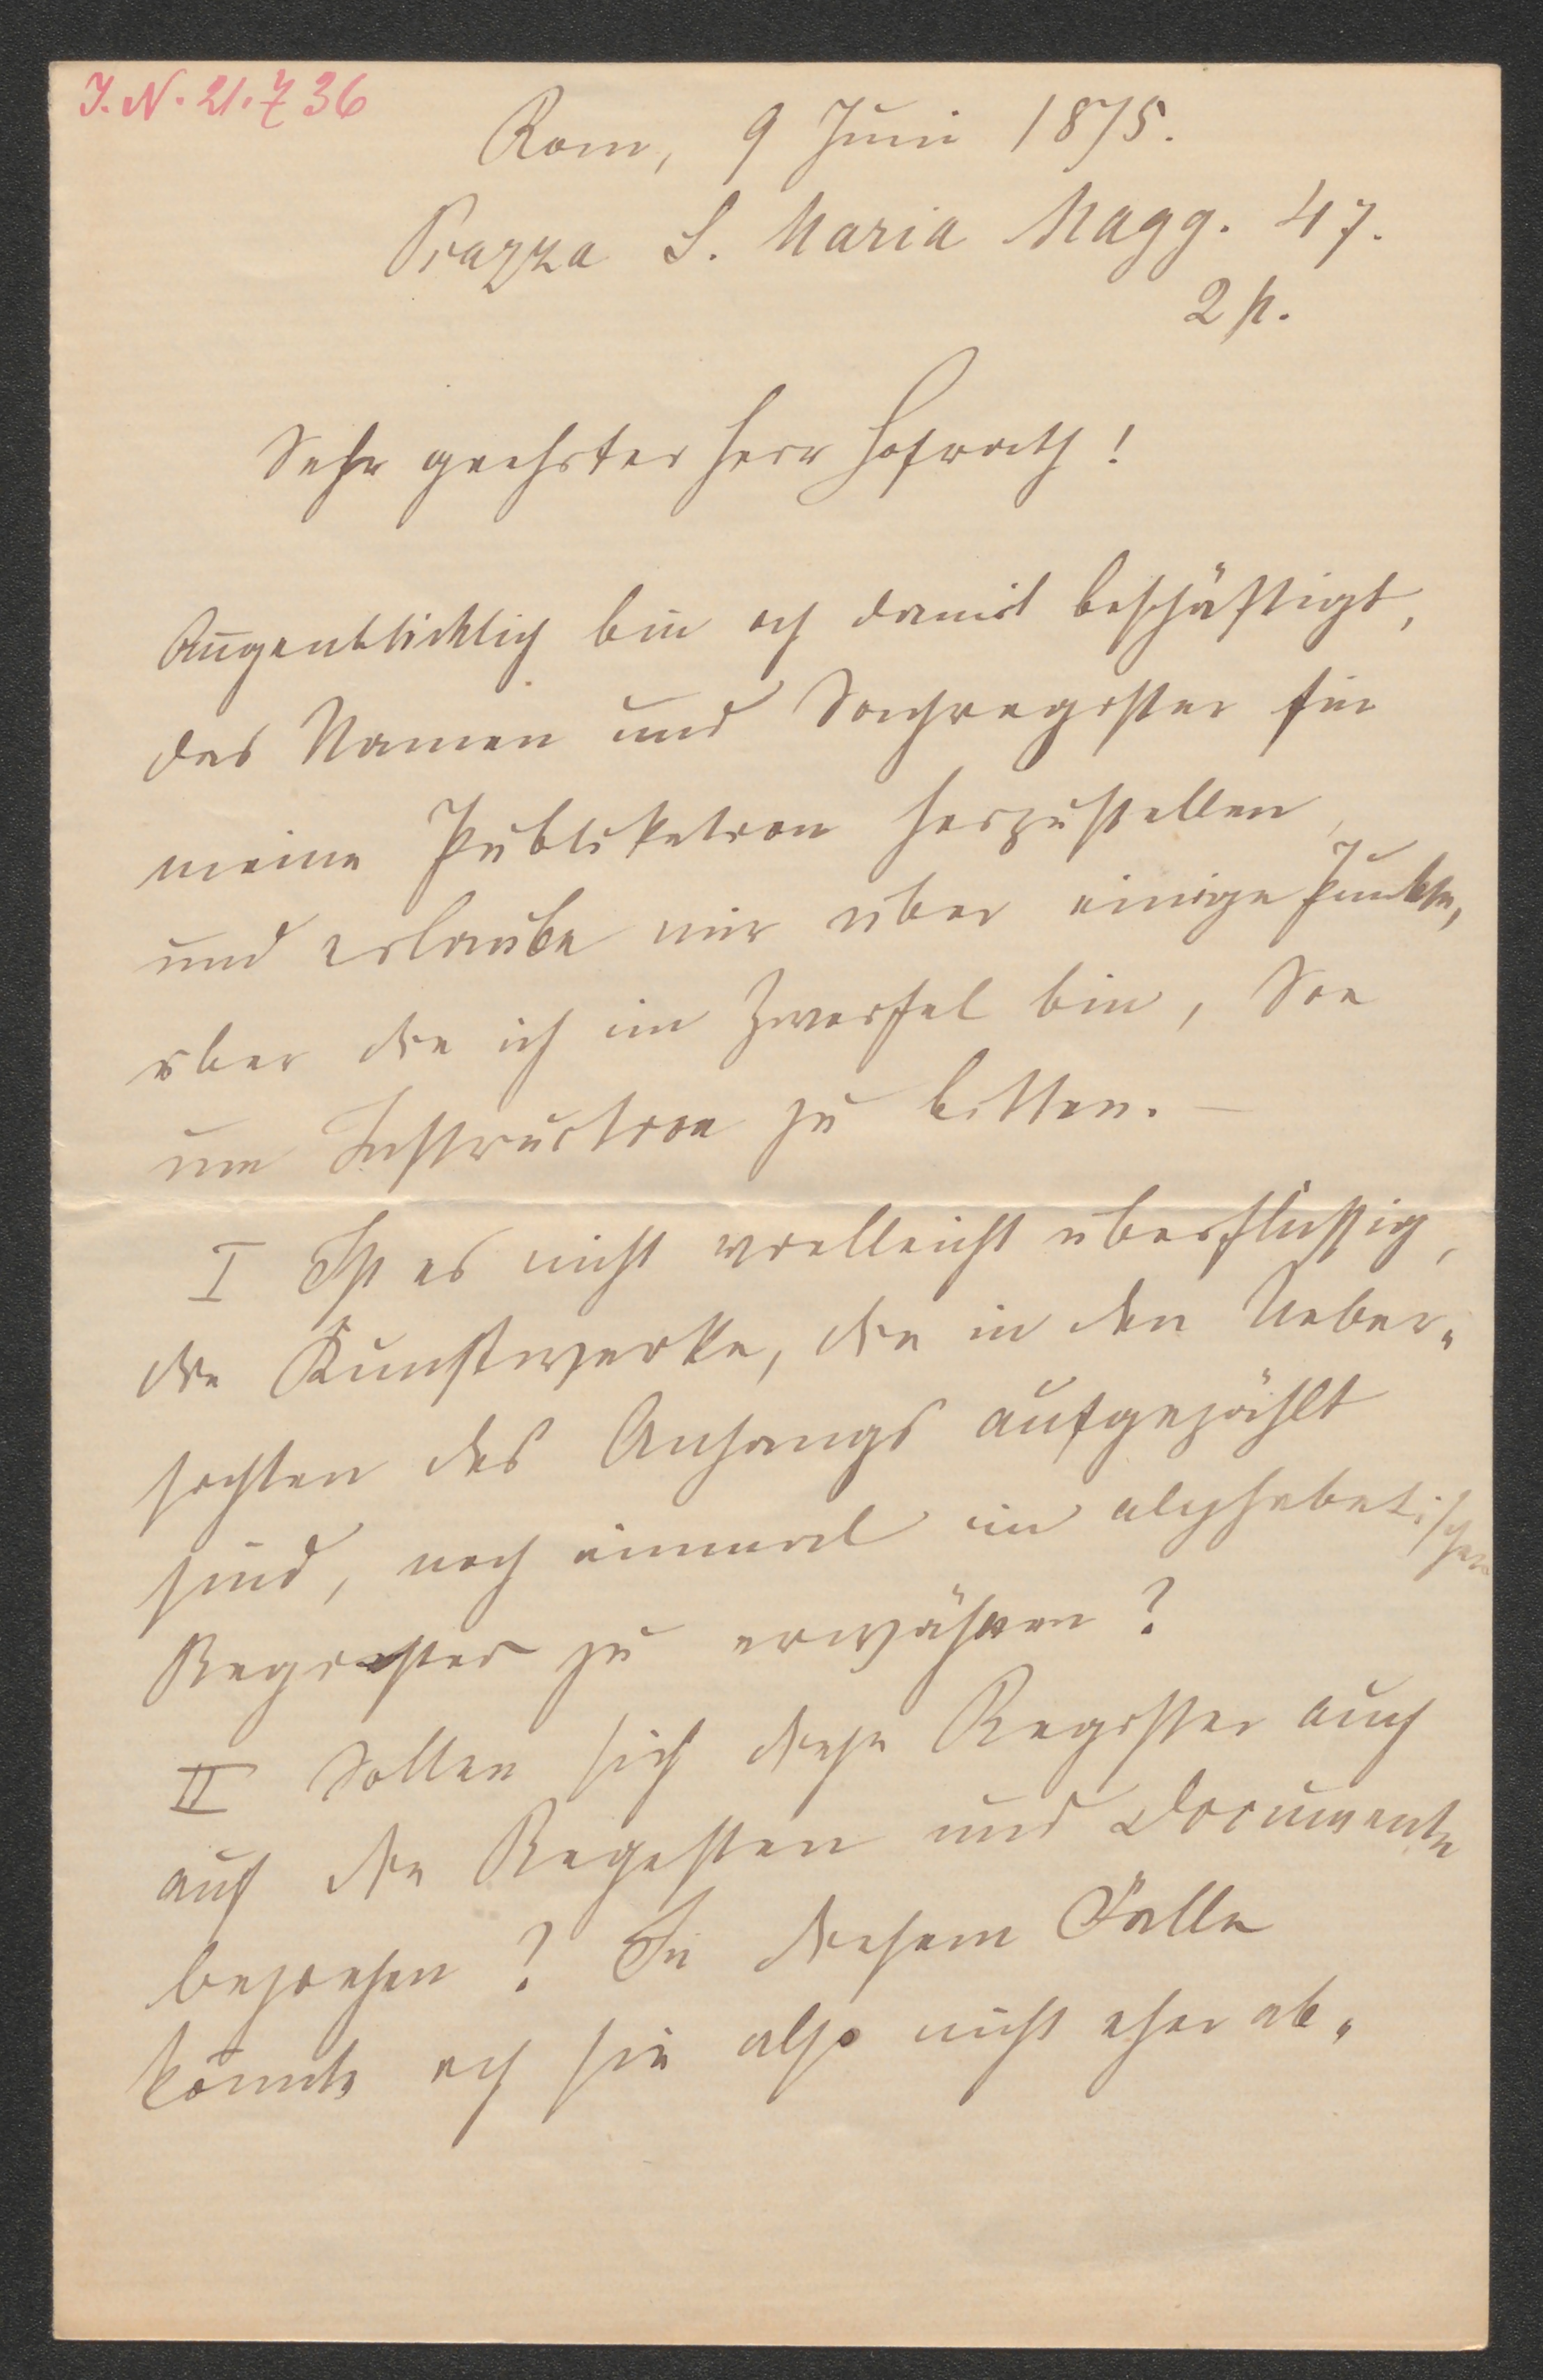 I. N. 21.736
Rom, 9 Juni 1875.
Piazza S. Maria Magg. 47.
2 p.
Sehr geehrter Herr Hofrath!
Augenblicklich bin ich damit beschäftigt,
das Namen und Sachregister für
meine Publikation herzustellen,
und erlaube mir über einige Punkte,
über die ich im Zweifel bin, Sie
um Instruction zu bitten. –
I Ist es nicht vielleicht überflüssig,
die Kunstwerke, die in den Ueber-
sichten des Anhangs aufgezählt
sind, noch einmal im alphabetischen
Register zu erwähnen?
II Sollen sich diese Register auch
auf die Regesten und Documente
beziehen? In diesem Falle
könnte ich sie also nicht eher ab-